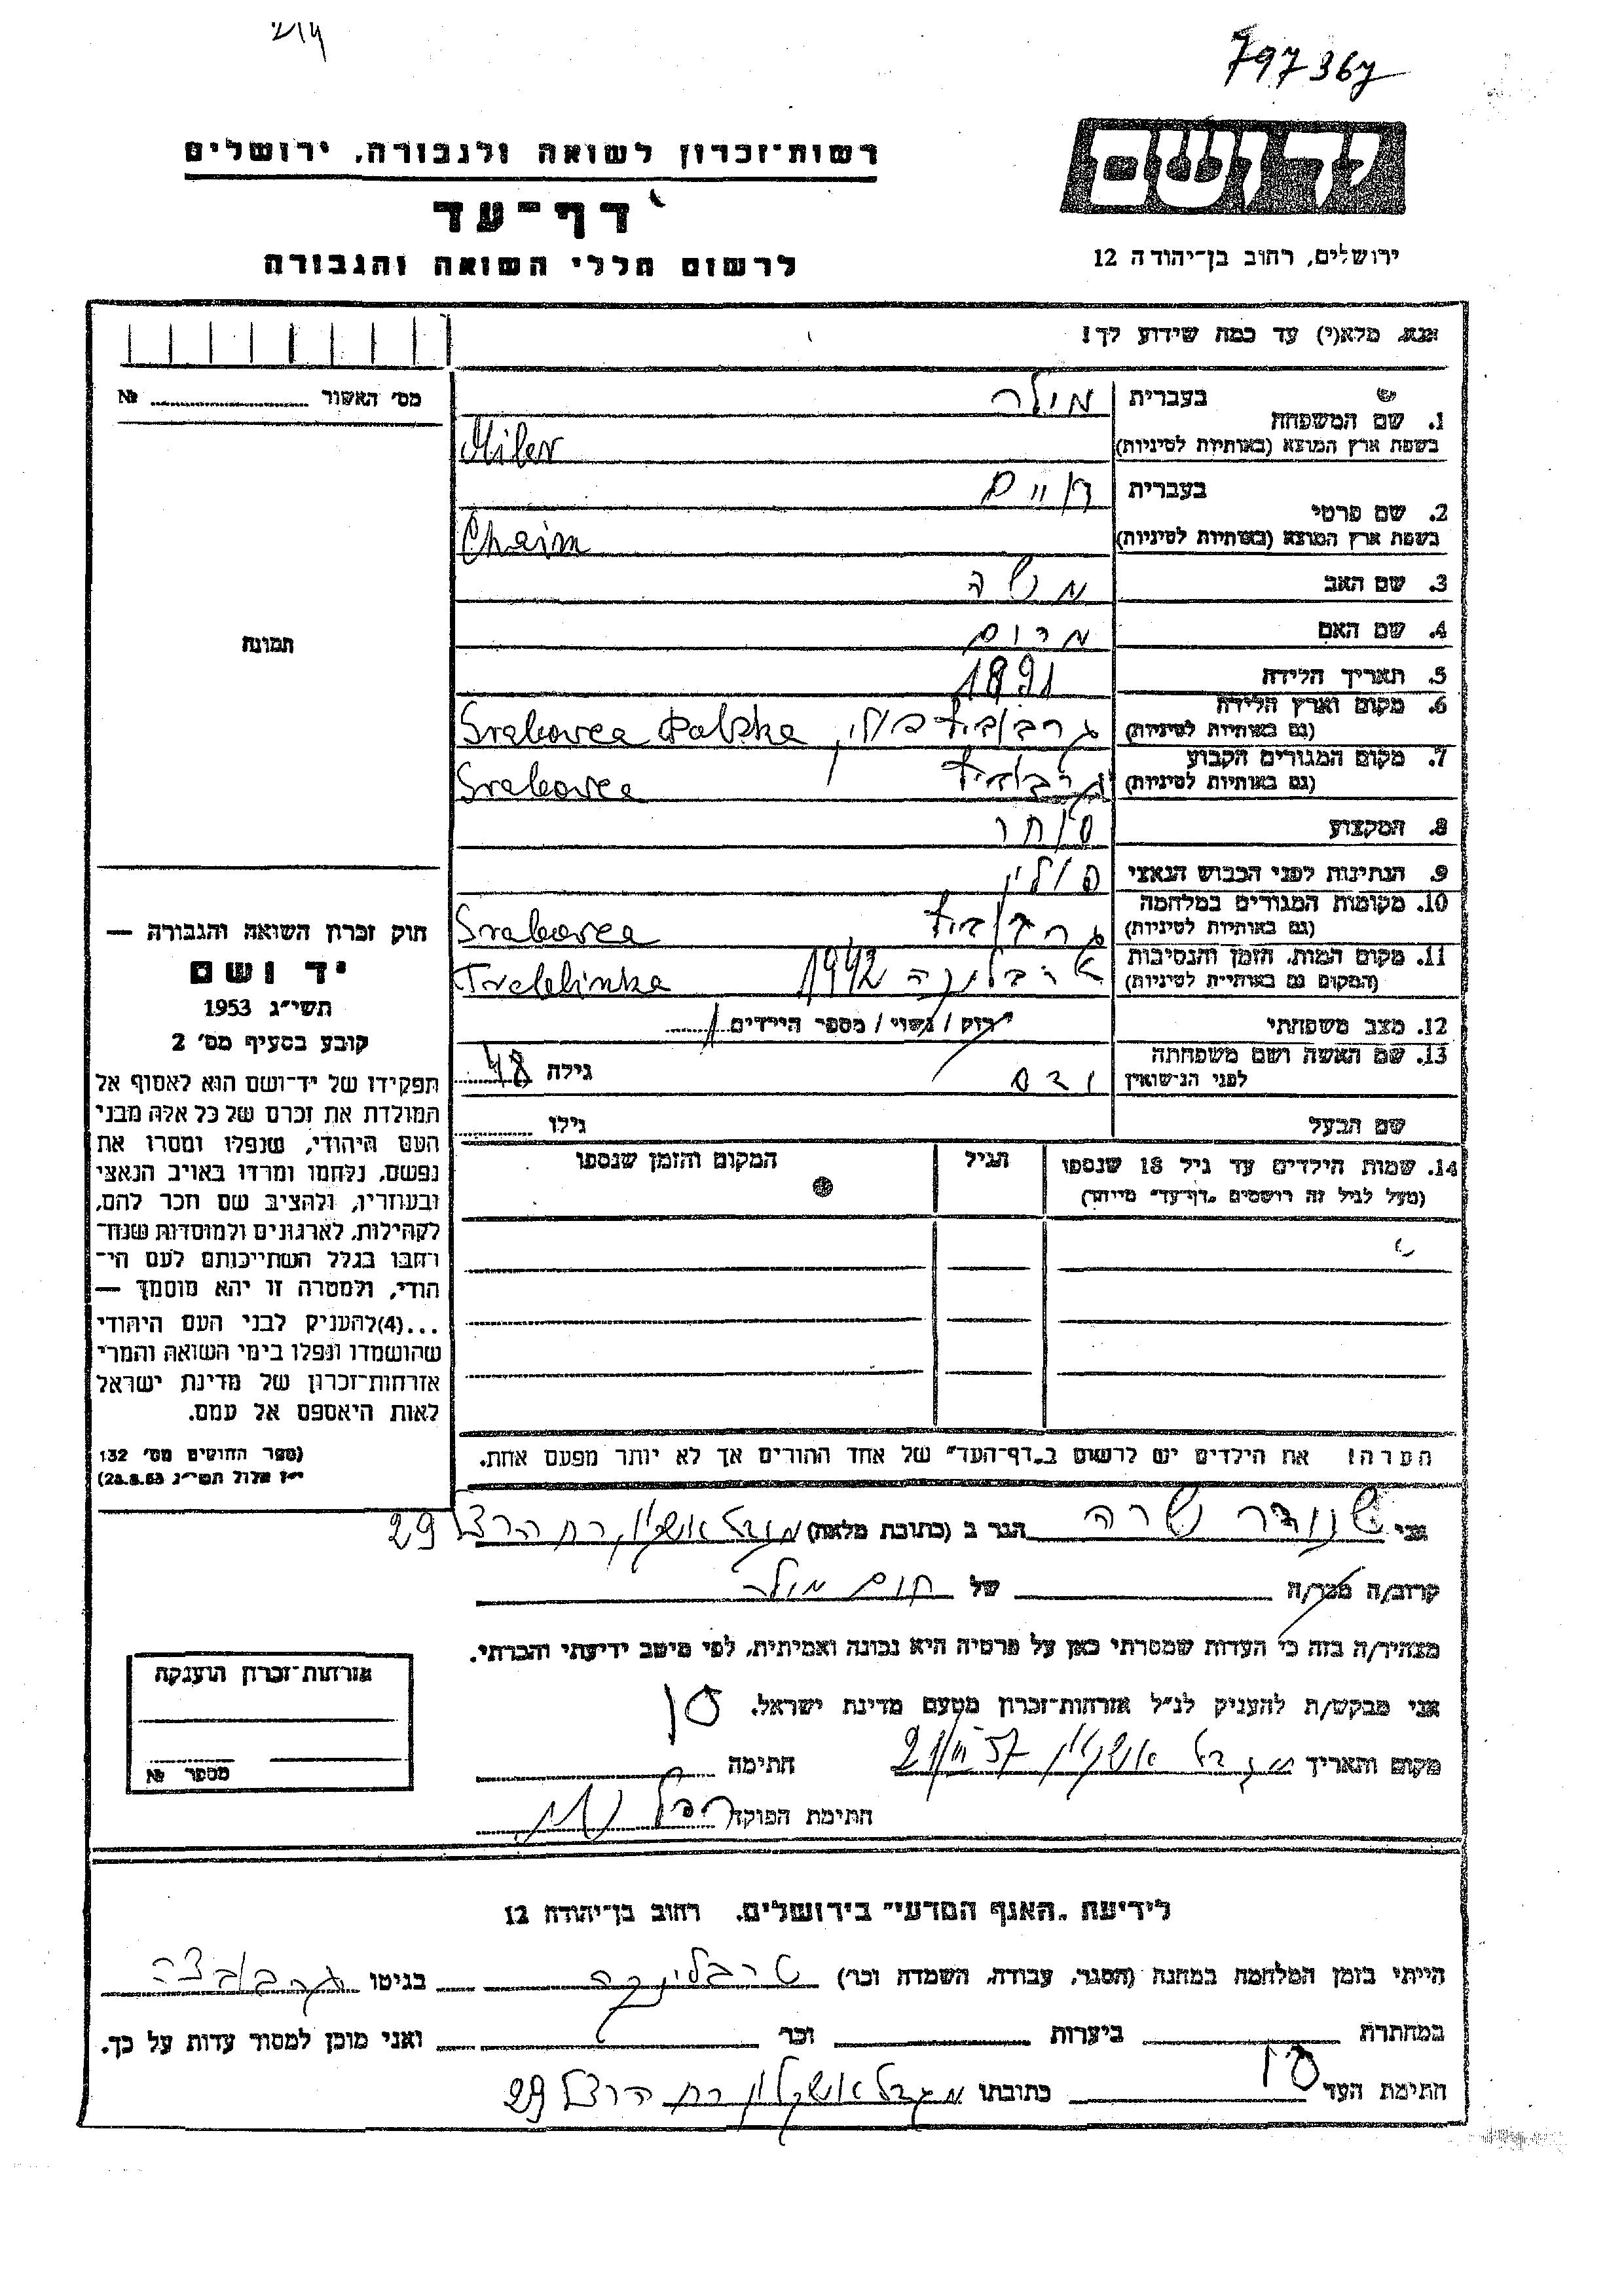 797367
רשות-זכרון לשואה ולגבורה, ירושלים
דף-עד
לרשום חללי השואה והגבורה
יד ושם
ירושלים, רחוב בן-יהודה 12
אנא, מלא(י) עד כמה שידוע לך!
מס' האשור № 
1. שם המשפחה
בעברית מילר
בשפת ארץ המוצא (באותיות לטיניות) Miler
2. שם פרטי
בעברית חיים
בשפת ארץ המוצא (באותיות לטיניות) Chaim
3. שם האב משה
4. שם האם מרים
5. תאריך הלידה 1891
6. מקום וארץ הלידה
(גם באותיות לטיניות) Srabovca Polska
7. מקום המגורים הקבוע
(גם באותיות לטיניות) Srabovca
8. המקצוע סוחר
9. הנתינות לפני הכבוש הנאצי פולין
10. מקומות המגורים במלחמה
(גם באותיות לטיניות) Srabovca
11. מקום המות, הזמן והנסיבות
(המקום גם באותיות לטיניות) 1942 Treblinka
12. מצב משפחתי רווק / נשוי / מספר הילדים
13. שם האשה ושם משפחתה
לפני הנישואין גילה 48
שם הבעל גילו
14. שמות הילדים עד גיל 18 שנספו
(מעל לגיל זה רושמים "דף-עד" מיוחד)
הגיל
המקום והזמן שנספו
הערה! את הילדים יש לרשום ב"דף-העד" של אחד ההורים אך לא יותר מפעם אחת.
תמונה
חוק זכרון השואה והגבורה —
יד ושם
תשי"ג 1953
קובע בסעיף מס' 2
תפקידו של יד-ושם הוא לאסוף אל
המולדת את זכרם של כל אלה מבני
העם היהודי, שנפלו ומסרו את
נפשם, נלחמו ומרדו באויב הנאצי
ובעוזריו, ולהציב שם וזכר להם,
לקהילות, לארגונים ולמוסדות שנח-
רחבו בגלל השתייכותם לעם הי-
הודי, ולמטרה זו יהא מוסמך —
...(4)להעניק לבני העם היהודי
שהושמדו ונפלו בימי השואה והמרי
אזרחות-זכרון של מדינת ישראל
לאות היאספם אל עמם.
(ספר החוקים מס' 132
י"ז אלול תשי"ג 28.8.53)
אני שרה הגר ב (כתובת מלאה) מגדל אשקלון, רח הרצל 29
קרוב/ה מכר/ה של חיים מילר
מצהיר/ה בזה כי העדות שמסרתי כאן על פרטיה היא נכונה ואמיתית, לפי מיטב ידיעתי והכרתי.
אני מבקש/ת להעניק לנ"ל אזרחות-זכרון מטעם מדינת ישראל.
מקום ותאריך מגדל אשקלון חתימה
חתימת הפוקד
אזרחות-זכרון הוענקה
מספר №
לידיעת "האגף המדעי" בירושלים, רחוב בן-יהודה 12
הייתי בזמן המלחמה במחנה (הסגר, עבודה, השמדה וכו') טרבלינקה בגיטו
במחתרת ביערות וכו' ואני מוכן למסור עדות על כך.
חתימת העד כתובתו מגדל אשקלון רח הרצל 29